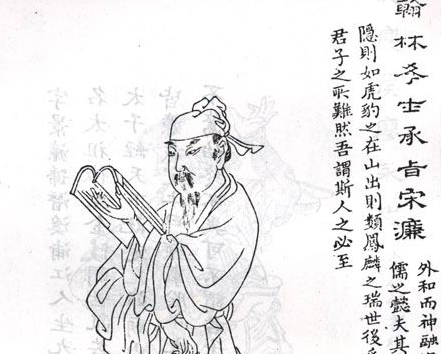 翰林學士承旨宋濂
外和而神融
儒之懿夫其
隱則如虎豹之在山出則類鳳麟之瑞世後
君子之所難然吾謂斯人之必至